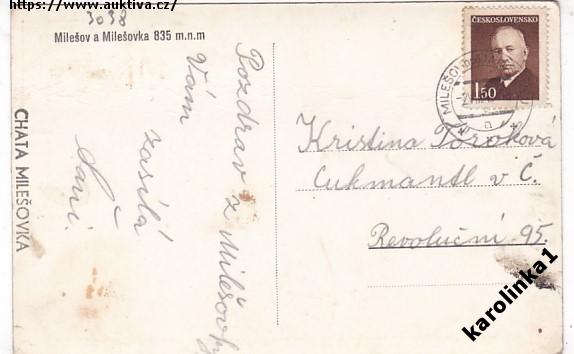 https://www.auktiva.cz/
3038
Milešov a Milešovka 835 m.n.m
CHATA MILEŠOVKA
Pozdrav z Milešovky
Vám
zasílá
ČESKOSLOVENSKO
1.50
MILEŠOV
Kristina Toroková
Cukmantl v Č.
Revoluční 95.
karolinka1